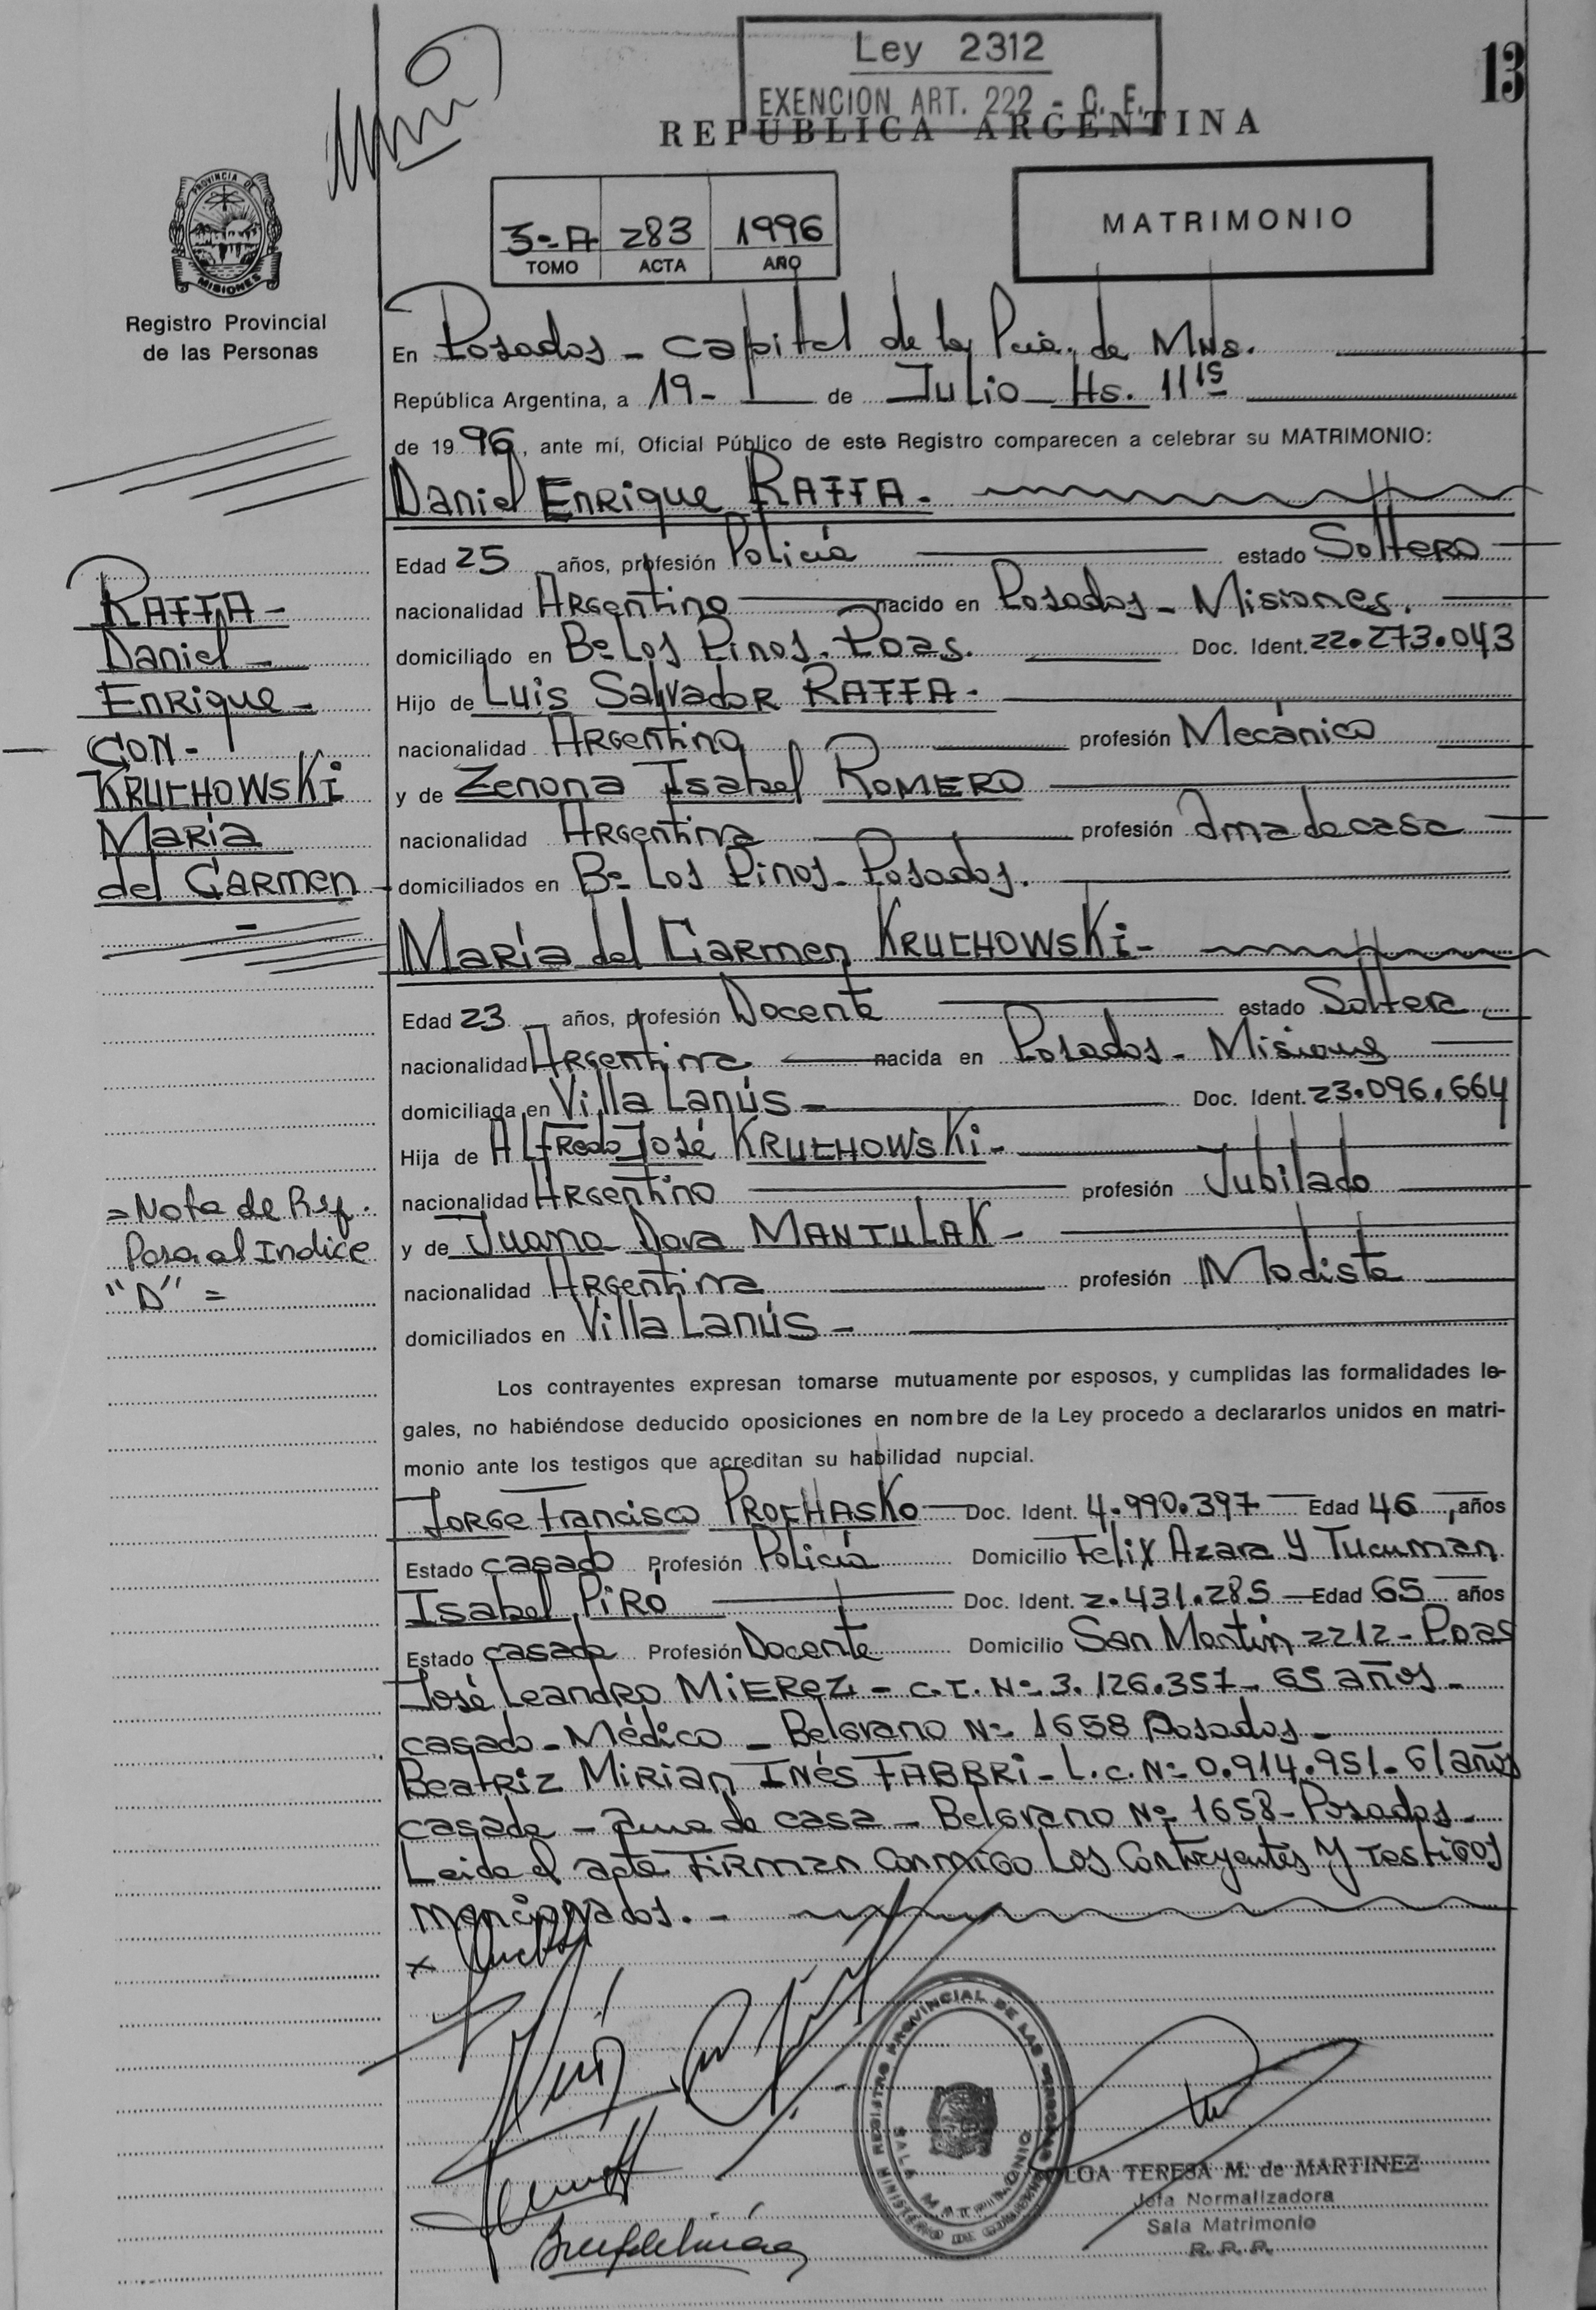 Ley 2312
EXENCION ART. 222 - C. F.
13
REPUBLICA ARGENTINA
PROVINCIA DE
MISIONES
Registro Provincial
de las Personas
3º-A 283 1996
TOMO ACTA AÑO
MATRIMONIO
En Posadas - Capital de la Pcia. de Mns.
República Argentina, a 19- de Julio Hs. 11 15
de 1996, ante mí, Oficial Público de este Registro comparecen a celebrar su MATRIMONIO:
Daniel Enrique RAFFA.-
Edad 25 años, profesión Policía estado Soltero
nacionalidad Argentino nacido en Posadas - Misiones.
domiciliado en Bº Los Pinos. Pdas. Doc. Ident. 22.273.043
Hijo de Luis Salvador RAFFA.-
nacionalidad Argentino profesión Mecánico
y de Zenona Isabel ROMERO
nacionalidad Argentina profesión Ama de casa
domiciliados en Bº Los Pinos - Posadas.
RAFFA-
Daniel-
Enrique-
CON-
KRUCHOWSKI
María
del Carmen
-
María del Carmen KRUCHOWSKI-
Edad 23 años, profesión Docente estado Soltera
nacionalidad Argentina nacida en Posadas - Misiones
domiciliada en Villa Lanús - Doc. Ident. 23.096.664
Hija de Alfredo José KRUCHOWSKI-
nacionalidad Argentino profesión Jubilado
y de Juana Dora MANTULAK-
nacionalidad Argentina profesión Modista
domiciliados en Villa Lanús -
= Nota de Ref.
Pasa al Indice
"D" =
Los contrayentes expresan tomarse mutuamente por esposos, y cumplidas las formalidades le-
gales, no habiéndose deducido oposiciones en nombre de la Ley procedo a declararlos unidos en matri-
monio ante los testigos que acreditan su habilidad nupcial.
Jorge Francisco PROCHASKO Doc. Ident. 4.990.397 Edad 46 años
Estado casado Profesión Policía Domicilio Felix Azara y Tucuman
Isabel PIRÓ Doc. Ident. 2.431.285 Edad 65 años
Estado casada Profesión Docente Domicilio San Martín 2212 - Pdas
José Leandro MIEREZ - C.I. Nº 3.126.357 - 65 años -
casado - Médico - Belgrano Nº 1658 Posados -
Beatriz Mirian Inés FABBRI - L.C. Nº 0.914.951 - 61 años
casada - ama de casa - Belgrano Nº 1658 - Posadas -
Leida el acta firman conmigo los contrayentes y testigos
mencionados. -
x
REGISTRO PROVINCIAL DE LAS PERSONAS
SALA MATRIMONIO
MINISTERIO DE GOBIERNO
OLGA TERESA M. de MARTINEZ
Jefa Normalizadora
Sala Matrimonio
R. P. P.